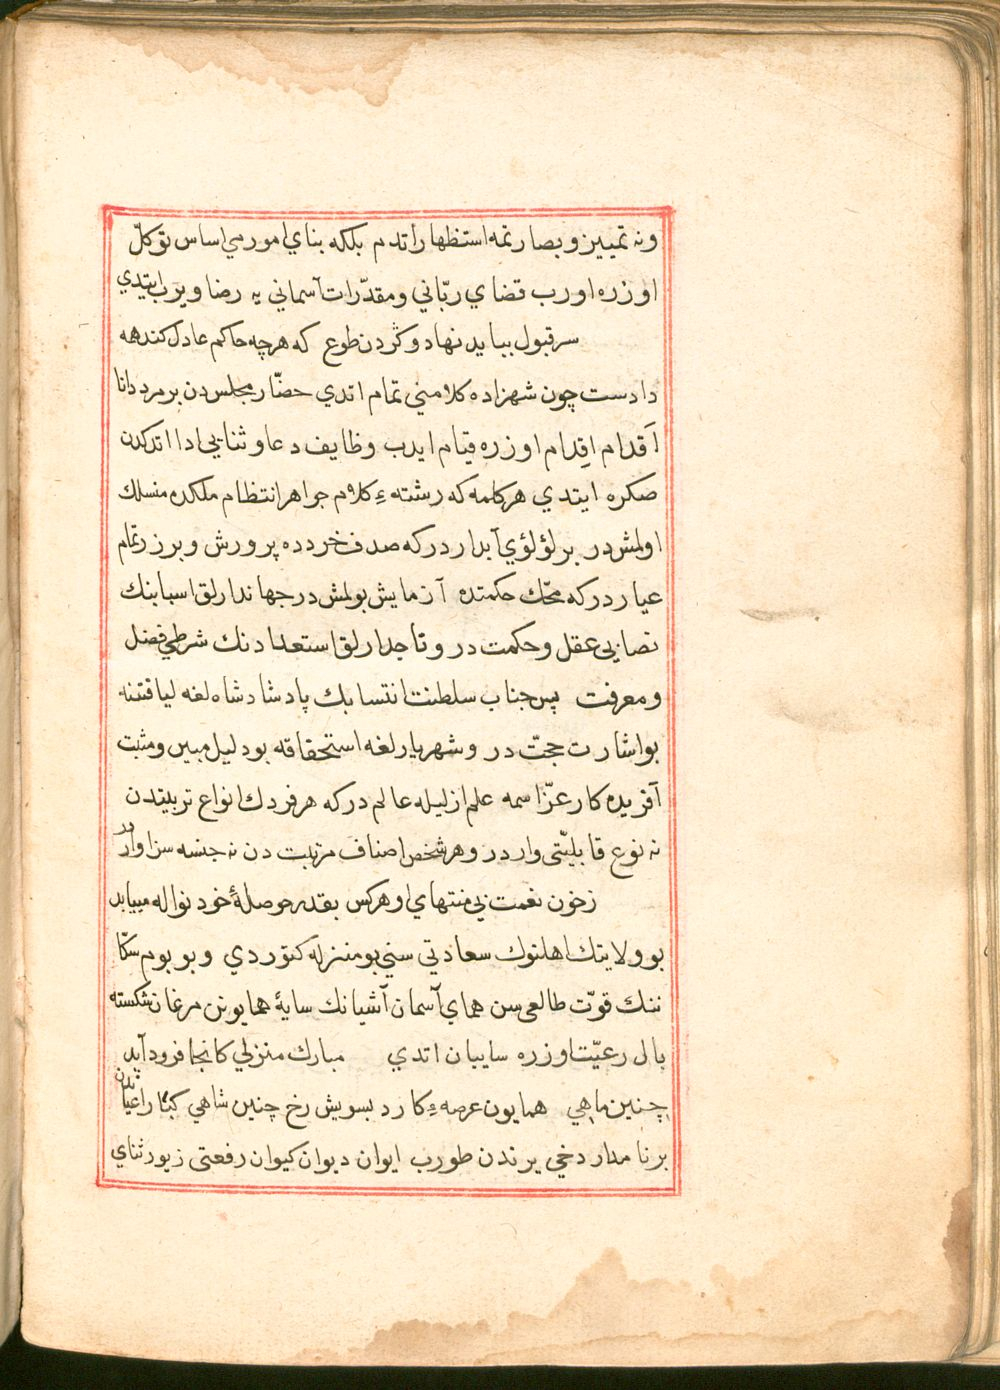 ونه تمييز وبصارتمه استظهار اتدم بلكه بناي امورمي اساس توكل
اوزره اورب قضاي ربّاني ومقدّرات آسماني يه رضا ويرب ايتدي
سر قبول ببايد نهاد وگردن طوع كه هرچه حاكم عادل كند همه
دادست چون شهزاده كلامني تمام اتدي حضّار مجلسدن بر مرد دانا
اَقدام اِقدام اوزره قيام ايدب وظايف دعا وثنايي ادا اتدكدن
صكره ايتدي هر كلمه كه رشتهء كلام جواهر انتظام ملكده منسلك
اولمشدر بر لؤلؤي آبدار در كه صدف خردده پرورش وبر زر تمام
عيار در كه محّك حكمتده آزمايش بولمشدر جهاندارلق اسبابنك
نصابي عقل وحكمت در وتاجدارلق استعدادنك شرطي فضل
ومعرفت پس جناب سلطنت انتسابك پادشاهلغه لياقتنه
بو اشارت حجّت در وشهريارلغه استحقاقه بو دليل مبين ومثبت
آفريده كار عزّ اسمه علم ازليله عالم در كه هر فردك انواع تربيتدن
نه نوع قابليّتى واردر وهر شخص اصناف مرتبت دن نه جنسه سزاواردر
زخون نعمت بي منتهاي او هركس بقدر حوصلهٔ خود نواله مييابد
بو ولايتك اهلنوك سعادتي سني بو منزله كتوردي وبو بوم سكّا
ننك قوّت طالعى سن هماي آسمان آشيانك سايهٔ همايونن مرغان شكسته
بال رعيّت اوزره سايبان اتدي مبارك منزلي كانجا فرود آيد
چنين ماهي همايون عرصهء كارد بسويش رخ چنين شاهي كبار اعياندن
بر نامدار دخي يرندن طورب ايوان ديوان كيوان رفعتى زيور ثناي